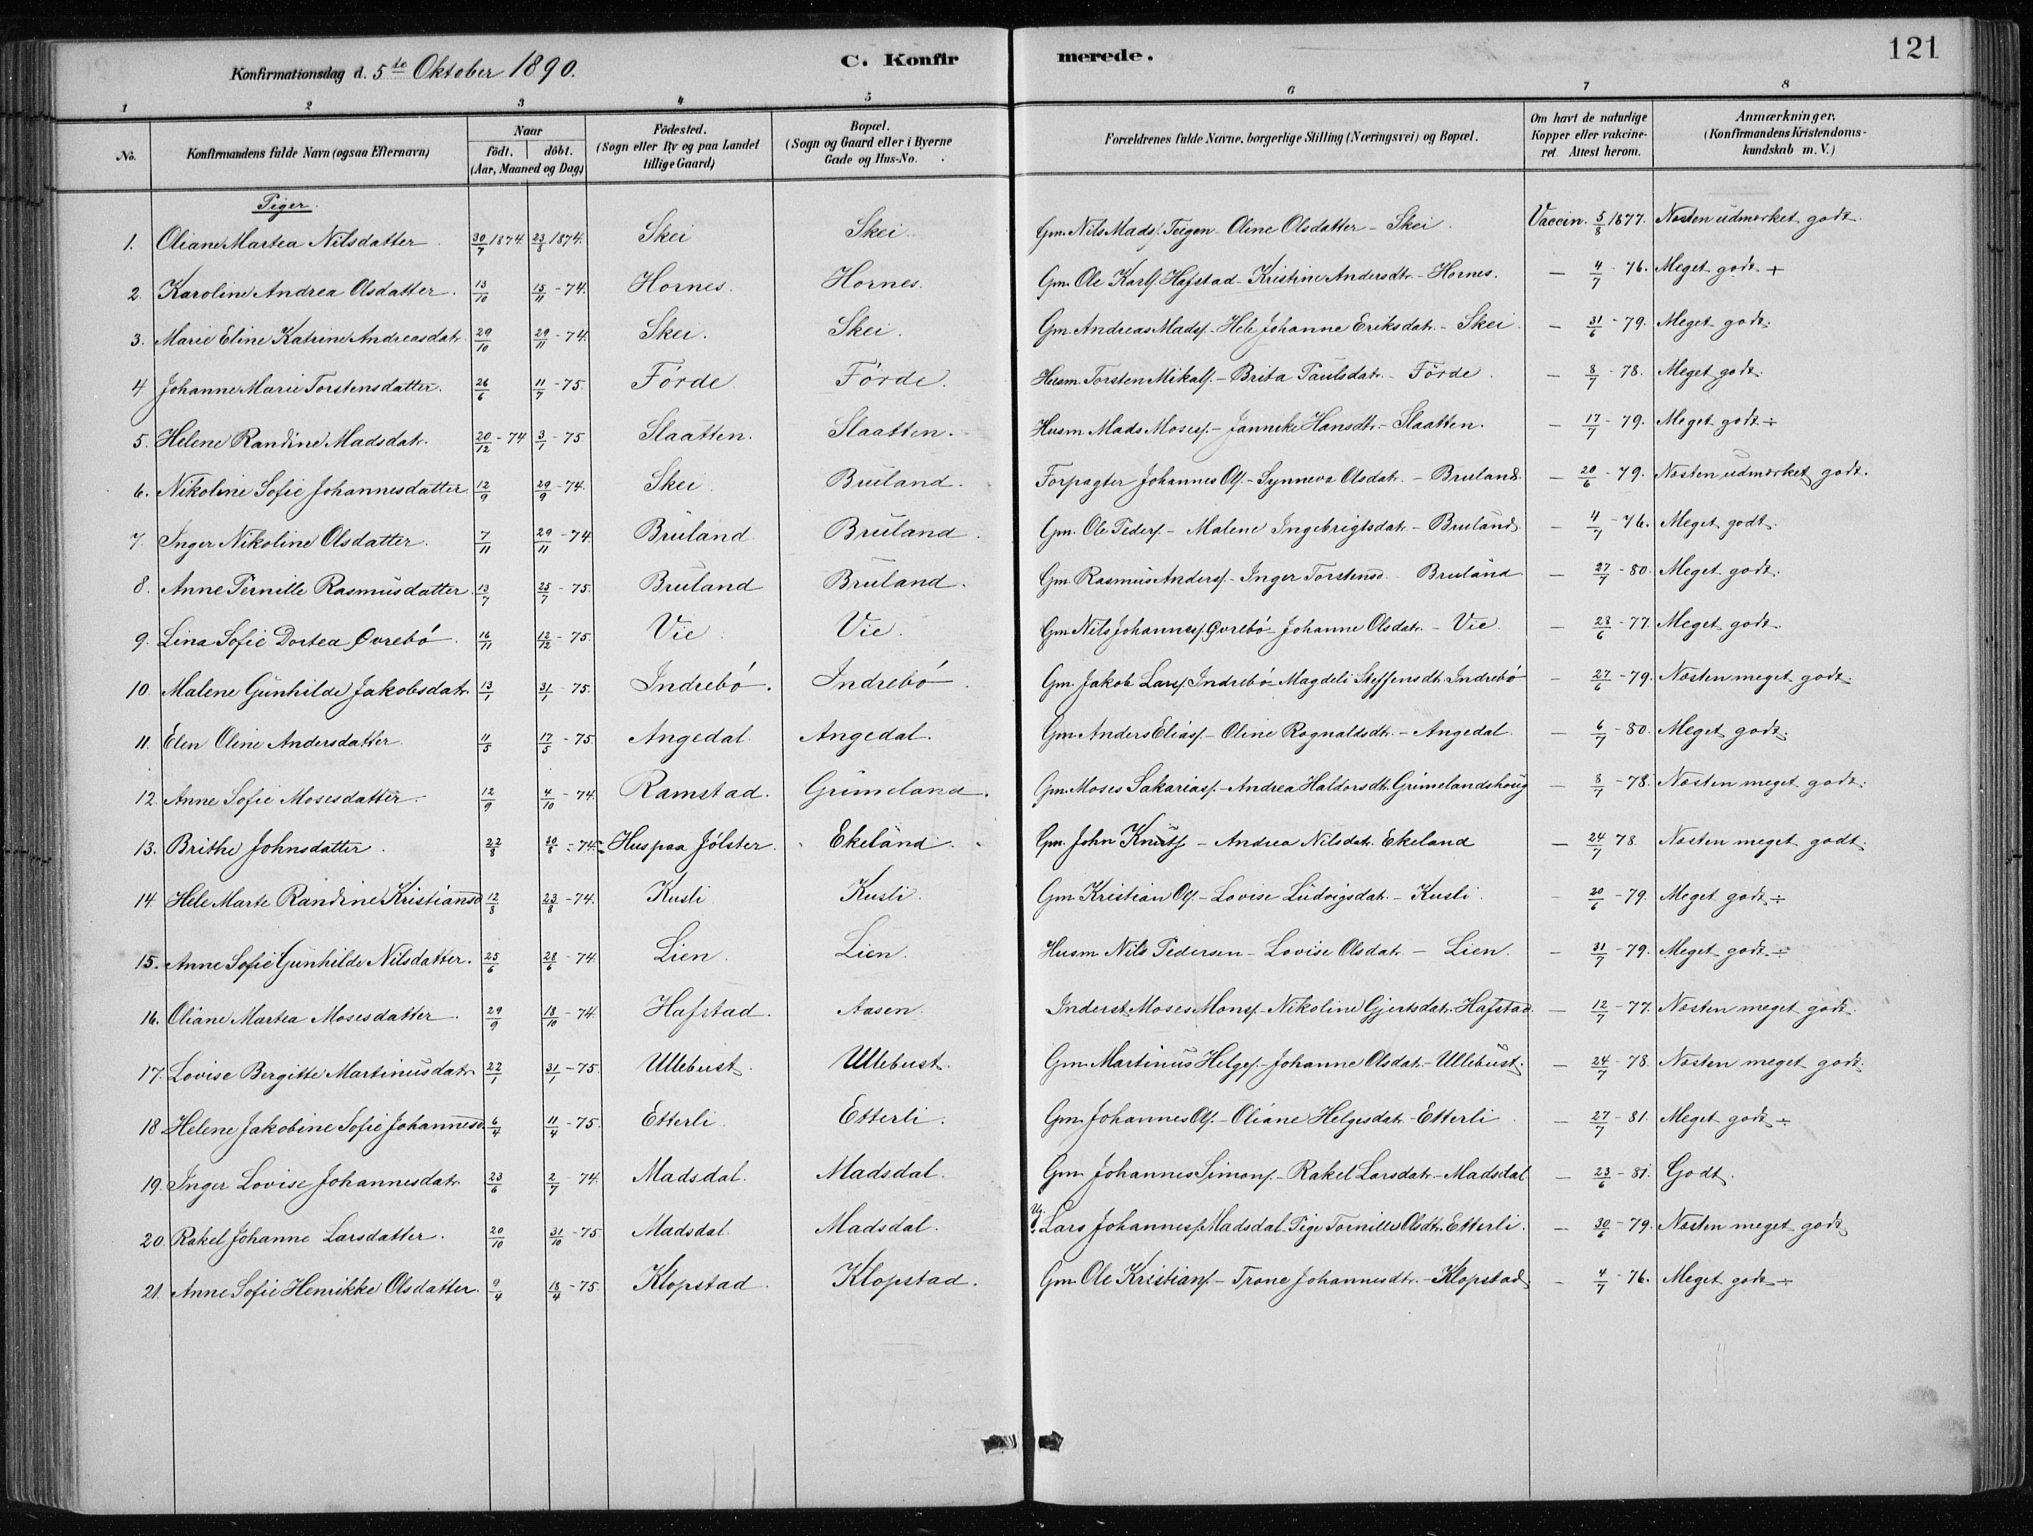 Konfirmationsdag d. 5te Oktober 1890. C. Konfirmerede. 121
1 2 3 4 5 6 7 8
No. Konfirmandens fulde Navn (ogsaa Efternavn) Naar födt, döbt. (Aar, Maaned og Dag) Födested. (Sogn eller By og paa Landet tillige Gaard) Bopæl. (Sogn og Gaard eller i Byerne Gade og Hus-No. Forældrenes fulde Navne, borgerlige Stilling (Næringsvei) og Bopæl. Om havt de naturlige Kopper eller vakcineret. Attest herom. Anmærkninger, (Konfirmandens Kristendomskundskab m. V.)
Piger.
1. Oliane Martea Nilsdatter 30/7 1874 23/8 1874. Skei Skei Gm. Nils Mads. Teigen - Oline Olsdatter - Skei. Vaccin. 5/8 1877. Næsten udmærket godt
2. Karoline Andrea Olsdatter. 13/10 15/11 - 74. Hornes. Hornes. Gm. Ole Karls. Hafstad - Kristine Andersdtr. - Hornes. — 4/7 - 76. Meget godt +
3. Marie Eline Katrine Andreasdatr. 29/10 29/11 - 74. Skei. Skei. Gm. Andreas Mads. - Hele Johanne Eriksdatr. - Skei. — 31/6 - 79. Meget godt.
4 Johanne Marie Torstensdatter. 26/6 11/7 - 75. Förde Förde. Husm. Torsten Mikals. - Brita Paulsdatr. - Förde. — 8/7 - 78. Meget godt.
5. Helene Randine Madsdatr. 20/12 - 74 3/1 - 75 Slaatten. Slaatten. Husm Mads Moses. - Jannike Hansdtr. - Slaatten. — 17/7 - 79. Meget godt ÷
6. Nikoline Sofie Johannesdatter 12/9 29/9 - 74. Skei. Bruland. Forpagter Johannes Ols. - Synneva Olsdatr. - Bruland. — 20/6 - 79. Næsten udmærket godt.
7. Inger Nikoline Olsdatter. 7/11 29/11 - 74. Bruland Bruland. Gm. Ole Peders. - Malene Ingebrigtsdatr. - Bruland — 4/7 - 76. Meget godt.
8. Anne Pernille Rasmusdatter. 13/7 25/7 - 75. Bruland Bruland. Gm. Rasmus Anders. - Inger Torstensd. Bruland — 27/7 - 80. Meget godt.
9. Lina Sofie Dortea Øvrebö. 16/11 12/12 - 75. Vie Vie. Gm. Nils Johannes. Øvrebö - Johanne Olsdatr. - Vie. — 23/6 - 77. Meget godt.
10. Malene Gunhilde Jakobsdatr. 13/1 31/1 - 75. Indrebö. Indrebö. Gm. Jakob Lars. Indrebö - Magdeli Steffensdtr. Indrebö — 27/6 - 79. Næsten meget godt.
11. Elen Oline Andersdatter. 11/5 17/5 - 75. Angedal. Angedal. Gm. Anders Elias. - Oline Rognaldsdtr. - Angedal. — 6/7 - 80. Meget godt.
12. Anne Sofie Mosesdatter. 12/9 4/10 - 74. Ramstad. Grimeland. Gm. Moses Sakarias. - Andrea Haldorsdtr. Grimelandshoug — 8/7 - 78. Næsten meget godt.
13. Brithe Johnsdatter. 22/8 30/8 - 74. Hus paa Jölster. Ekeland. Gm. John Knuts. - Andrea Nilsdatr. Ekeland — 24/7 78. Næsten meget godt.
14. Hele Marte Randine Kristiansd 12/8 23/8 - 74. Kusli. Kusli. Gm Kristian Ols. - Lovise Ludvigsdatr. - Kusli. — 20/6 - 79. Meget godt ÷
15. Anne Sofie Gunhilde Nilsdatter. 25/6 28/6 - 74. Lien. Lien. Husm Nils Pedersen - Lovise Olsdatr. - Lien. — 31/7 - 79. Meget godt ÷
16. Oliane Martea Mosesdatter. 29/9 18/10 - 74. Hafstad. Aasen. Inderst Moses Mons. - Nikoline Gjertsdatr. Hafstad. — 12/7 - 77. Næsten meget godt.
17. Lovise Bergitte Martinusdatr. 22/1 31/1 - 75. Ullebust. Ullebust. Gm. Martinus Helges. - Johanne Olsdatr. - Ullebust. — 24/7 - 78. Næsten meget godt.
18 Helene Jakobine Sofie Johannesd. 6/4 11/4 - 75. Etterli. Etterli. Gm. Johannes Ols. - Oliane Helgesdatr. - Etterli. — 27/7 - 81. Meget godt ÷
19. Inger Lovise Johannesdatr. 23/6 2/7 - 74. Madsdal. Madsdal. Gm. Johannes Simons. - Rakel Larsdatr. - Madsdal — 23/6 - 81. Godt.
20. Rakel Johanne Larsdatter. 20/10 31/10 - 75. Madsdal. Madsdal. Lars Johannes. Madsdal. Pige Olsdtr. Etterli. — 30/6 - 79. Næsten meget godt.
21. Anne Sofie Henrikke Olsdatter. 9/4 18/4 - 75. Klopstad. Klopstad. Gm. Ole Kristians. - Trone Johannesdtr. - Klopstad. — 4/7 - 76. Meget godt ÷